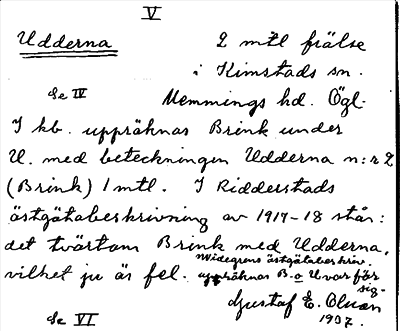 V
Udderna 2 mtl frälse
i Kimstads sn.
Se IV Memmings hd. Ögl.
I kb. uppräknas Brink under
U. med beteckningen Udderna n:r 2
(Brink) 1 mtl. I Ridderstads
östgötabeskrivning av 1917-18 står:
det tvärtom Brink med Udderna,
vilket ju är fel. Widegrens östgötabeskriv.
uppräknas B. o U var för
sig.
Gustaf E. Olson
Se VI 1937.